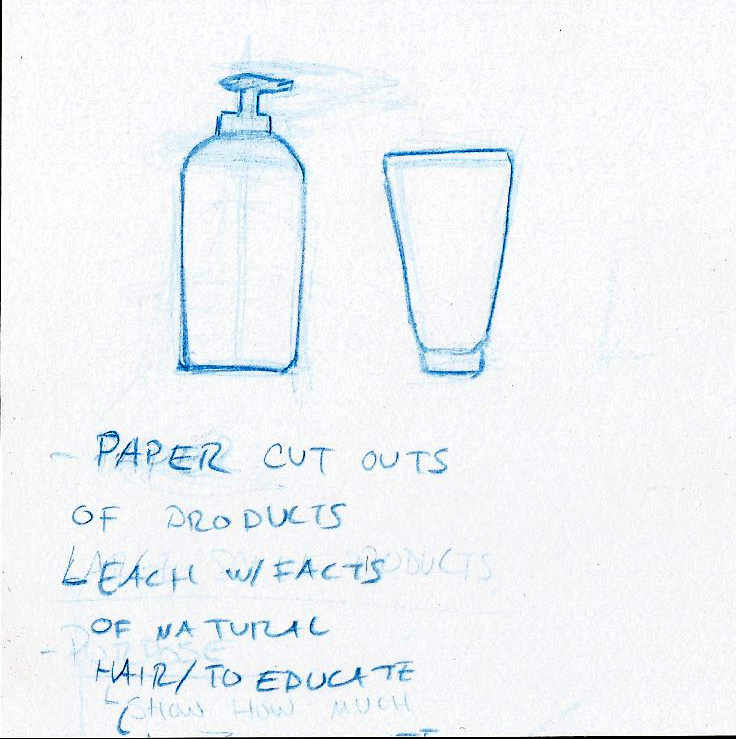 - PAPER CUT OUTS
OF PRODUCTS
PRODUCTS
EACH W/ FACTS
OF NATURAL
- PURPOSE
HAIR/TO EDUCATE
SHOW HOW MUCH